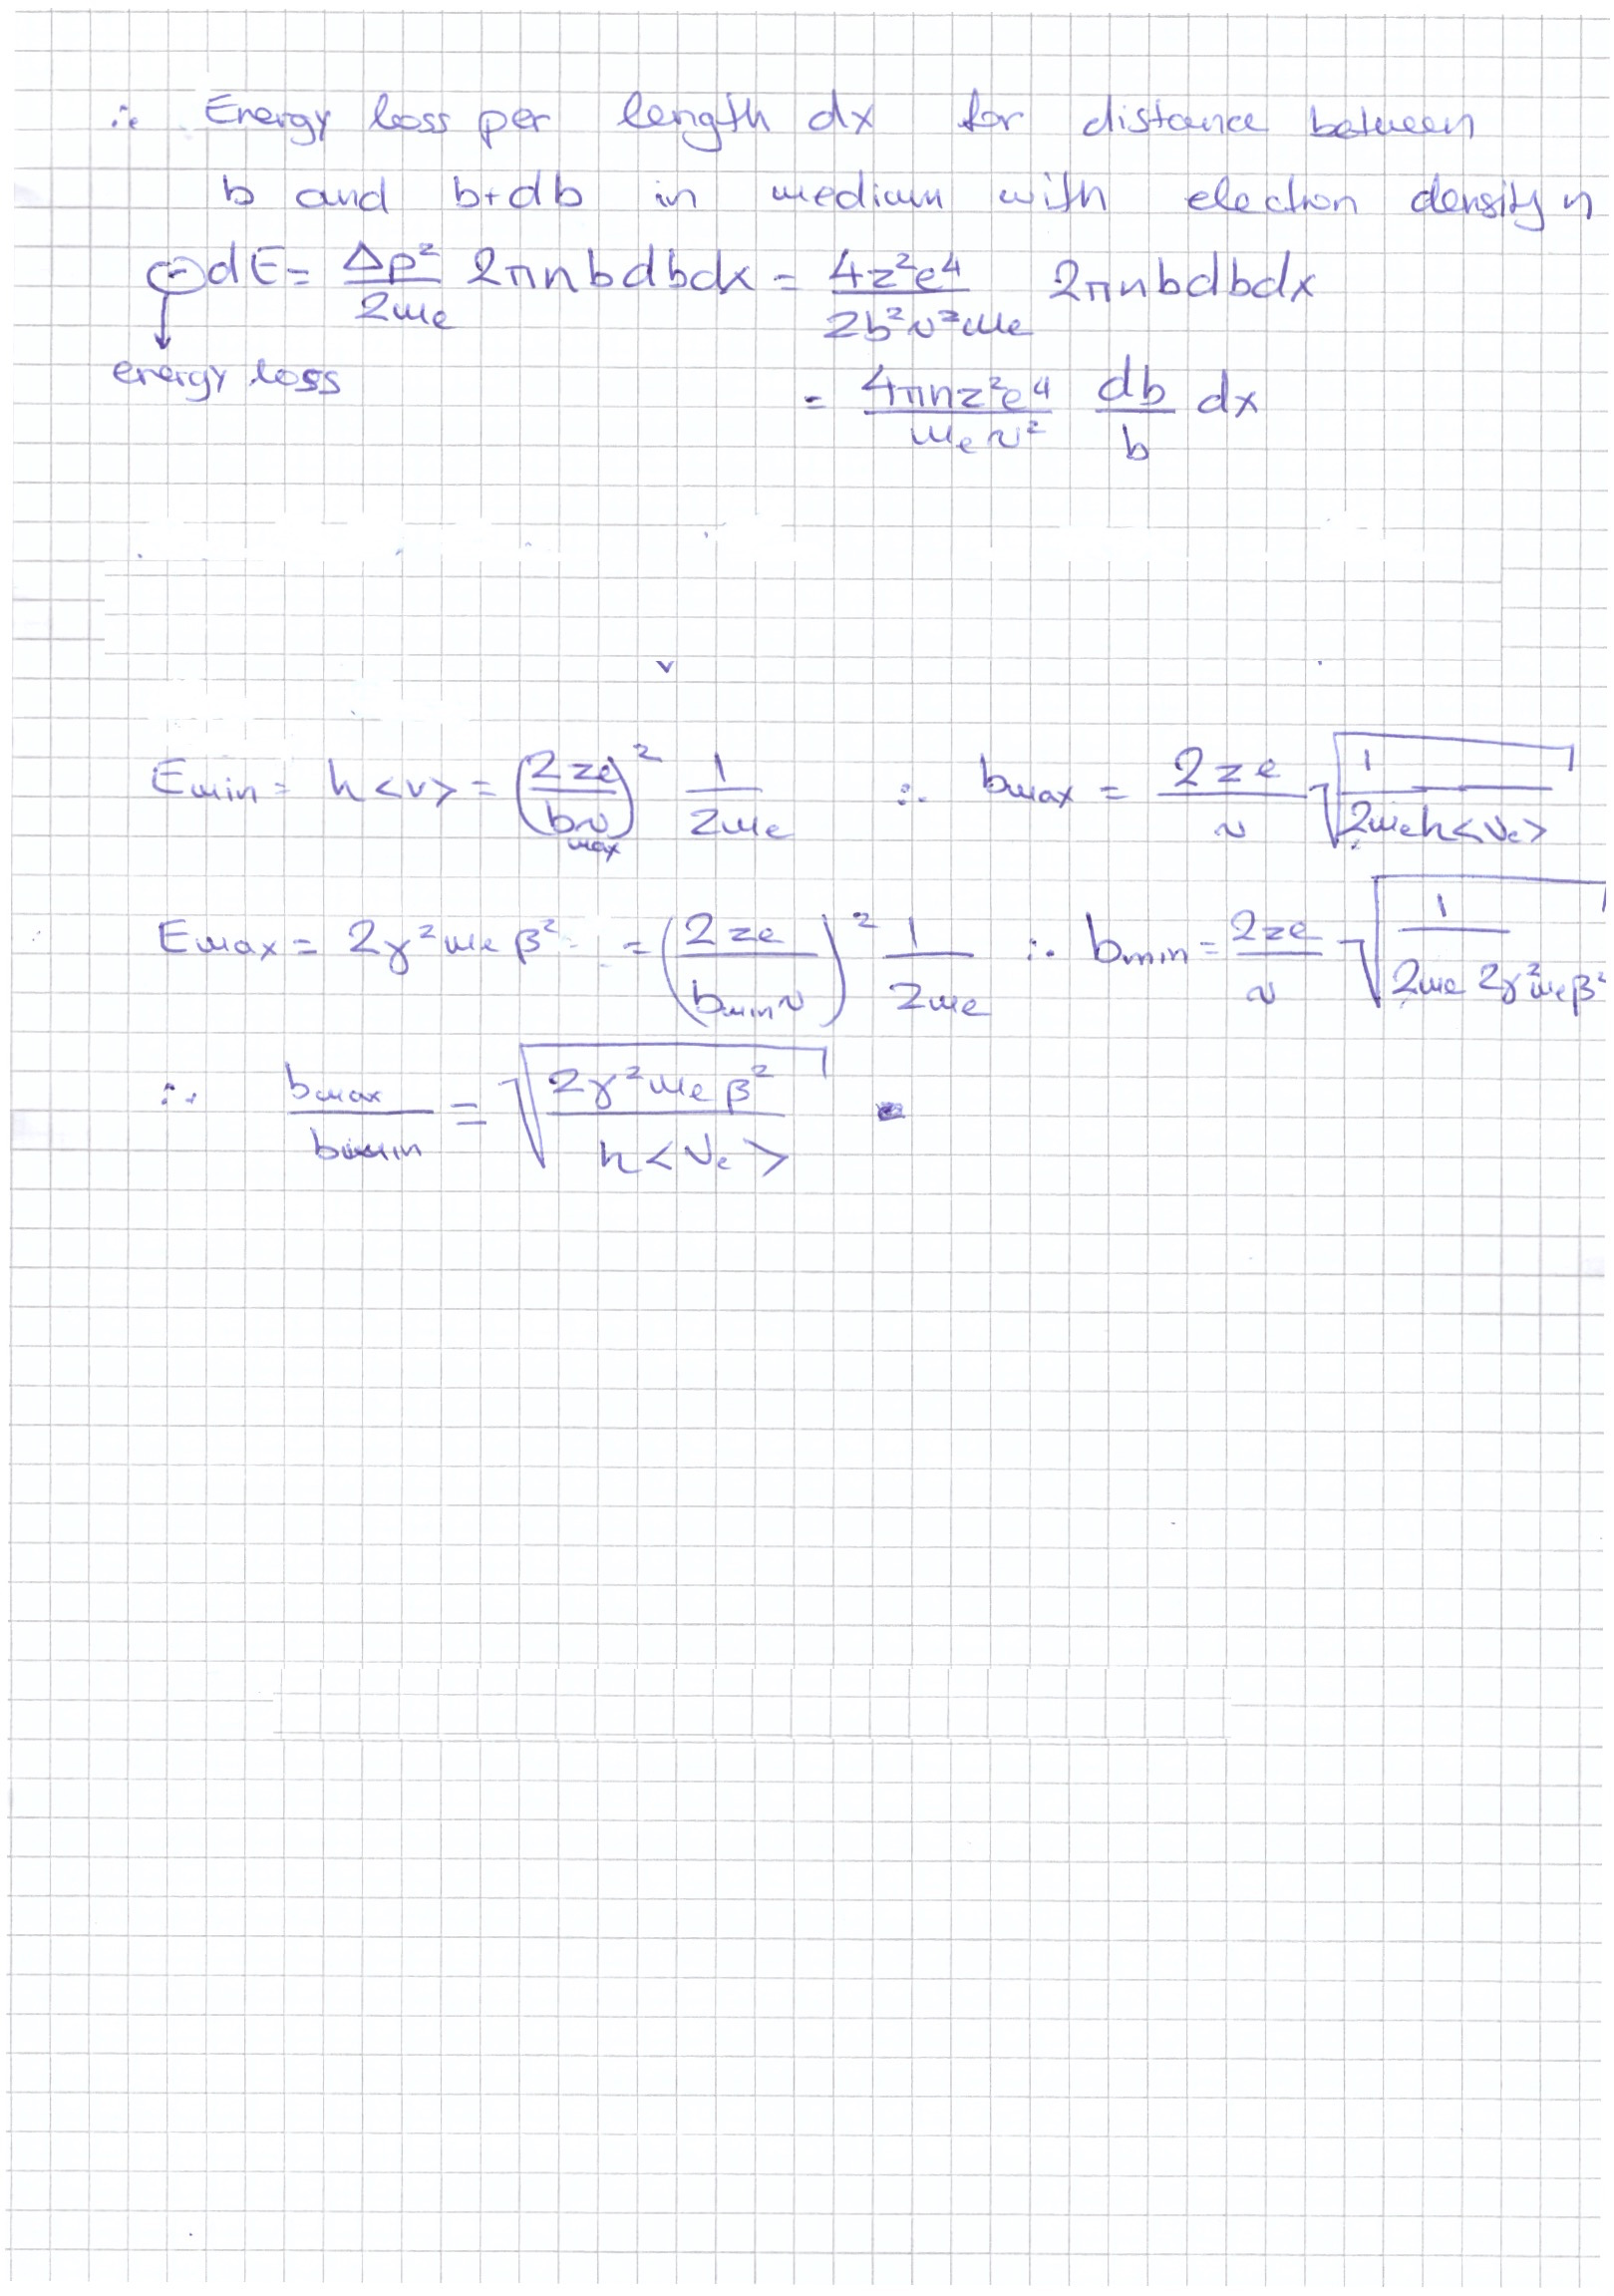 ∴ Energy loss per length dx for distance between
b and b+db in medium with election density n
(-)dE = Δp²/2me 2πnbdbdx = 4z²e⁴/2b²v²me 2πnbdbdx
energy loss
= 4πnz²e⁴/mev² db/b dx
Emin = h<ν> = (2ze/bmaxv)² 1/2me ∴ bmax = 2ze/v √(1/2meh<νe>)
Emax = 2γ²meβ² = (2ze/bminv)² 1/2me ∴ bmin = 2ze/v √(1/2me2γ²meβ²)
∴ bmax/bmin = √(2γ²meβ²/h<νe>)